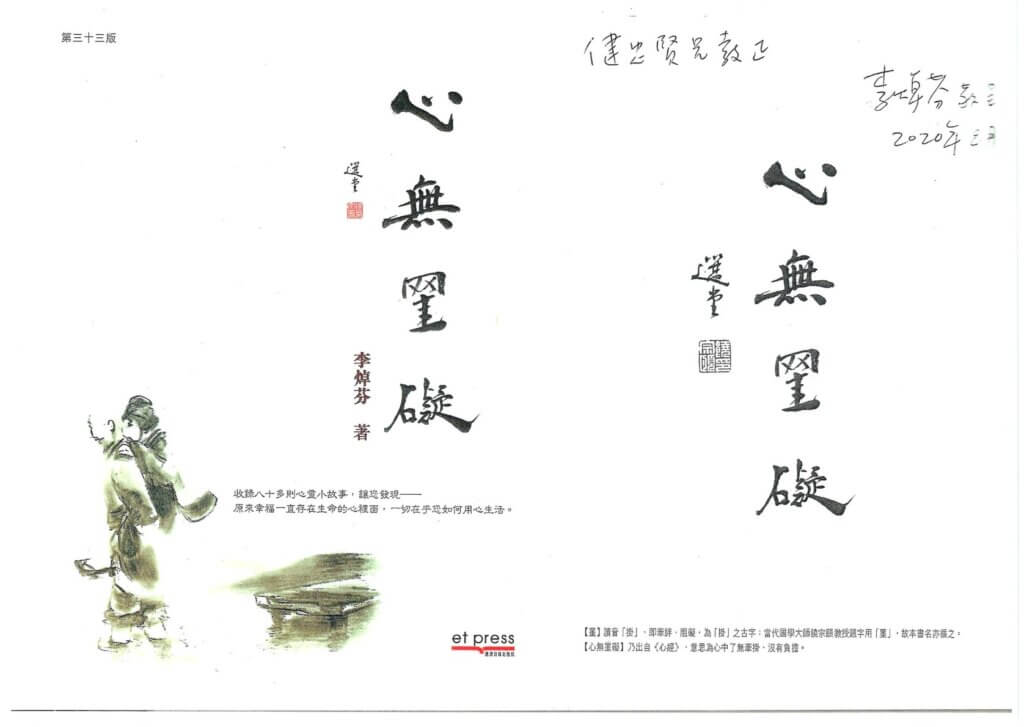 第三十三版
心無罣礙
選堂
李焯芬 著
收錄八十多則心靈小故事，讓您發現——
原來幸福一直存在生命的心裡面，一切在乎您如何用心生活。
et press
健忠賢兄教正
李焯芬
2020年
心無罣礙
選堂
【罣】讀音「掛」，即牽絆、阻礙，為「掛」之古字；當代國學大師饒宗頤教授題字用「罣」，故本書名亦循之。
【心無罣礙】乃出自《心經》，意思為心中了無牽掛，沒有負擔。